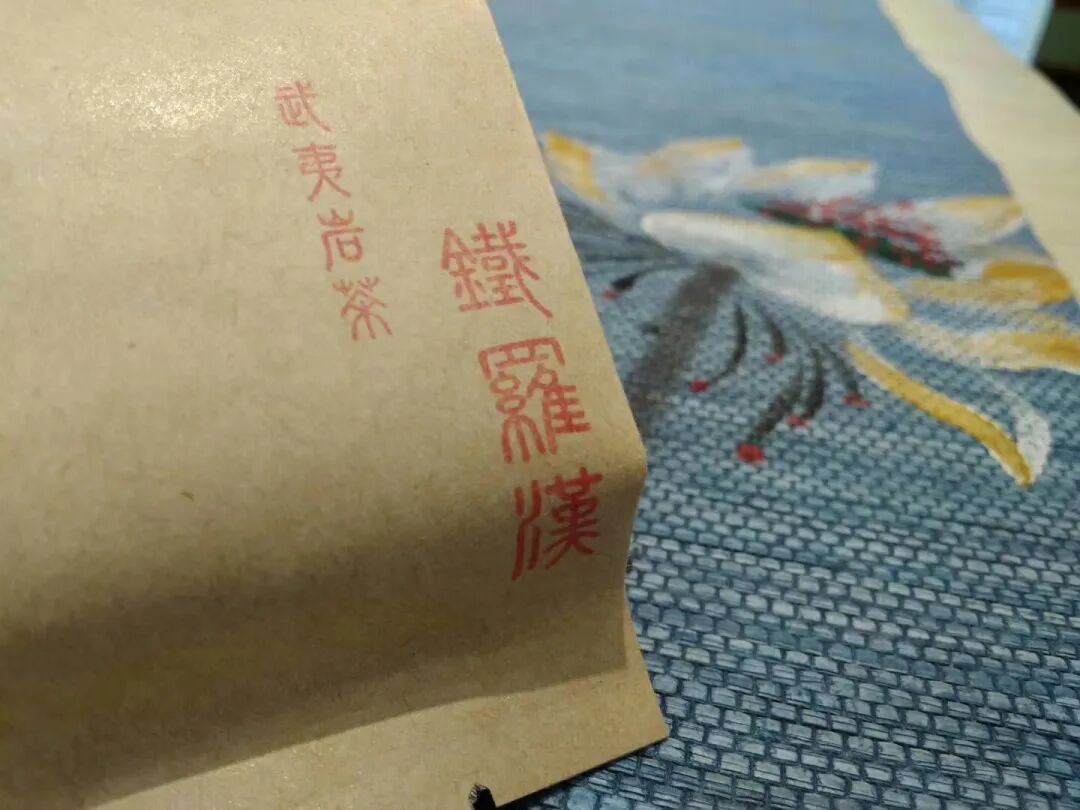 鐵羅漢
武夷岩茶